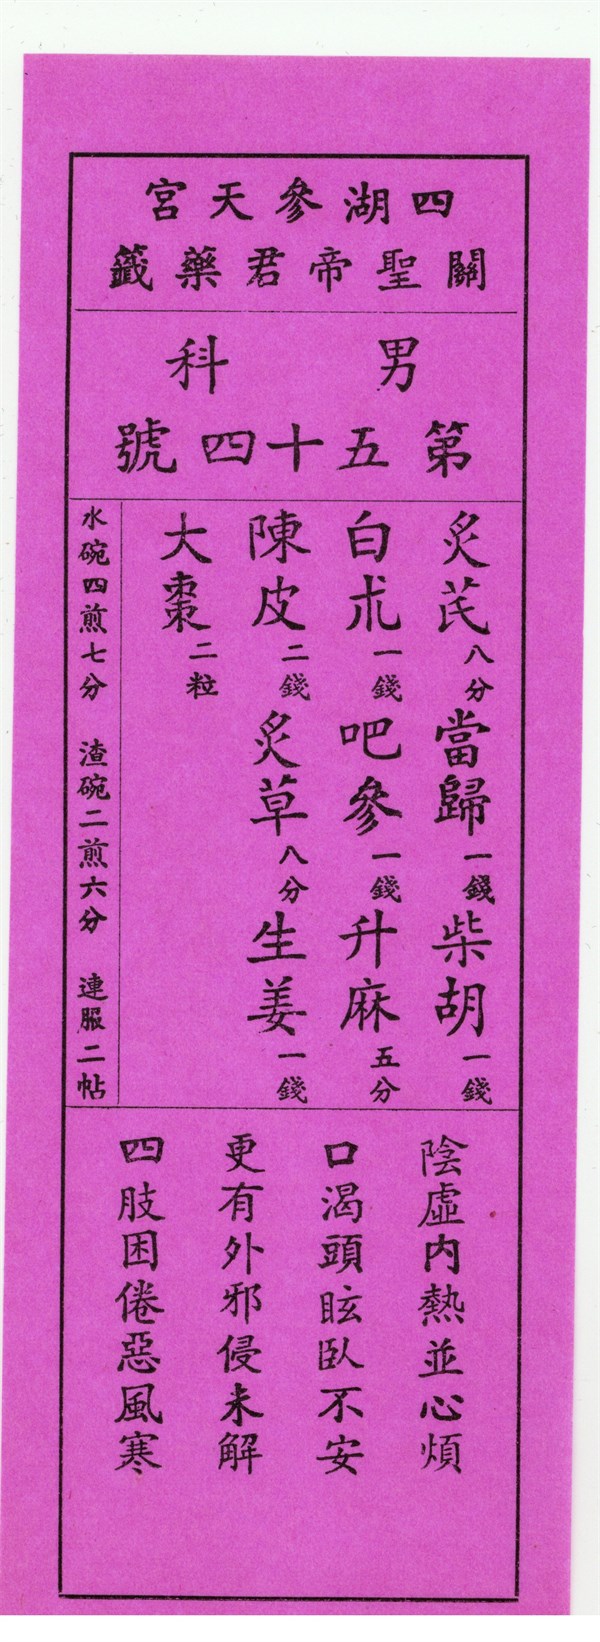 四湖參天宮
關聖帝君藥籤
男科
第五十四號
炙芪八分 當歸一錢 柴胡一錢
白朮一錢 吧參一錢 升麻五分
陳皮二錢 炙草八分 生姜一錢
大棗二粒
水碗四煎七分 渣碗二煎六分 連服二帖
陰虛內熱並心煩
口渴頭眩臥不安
更有外邪侵未解
四肢困倦惡風寒